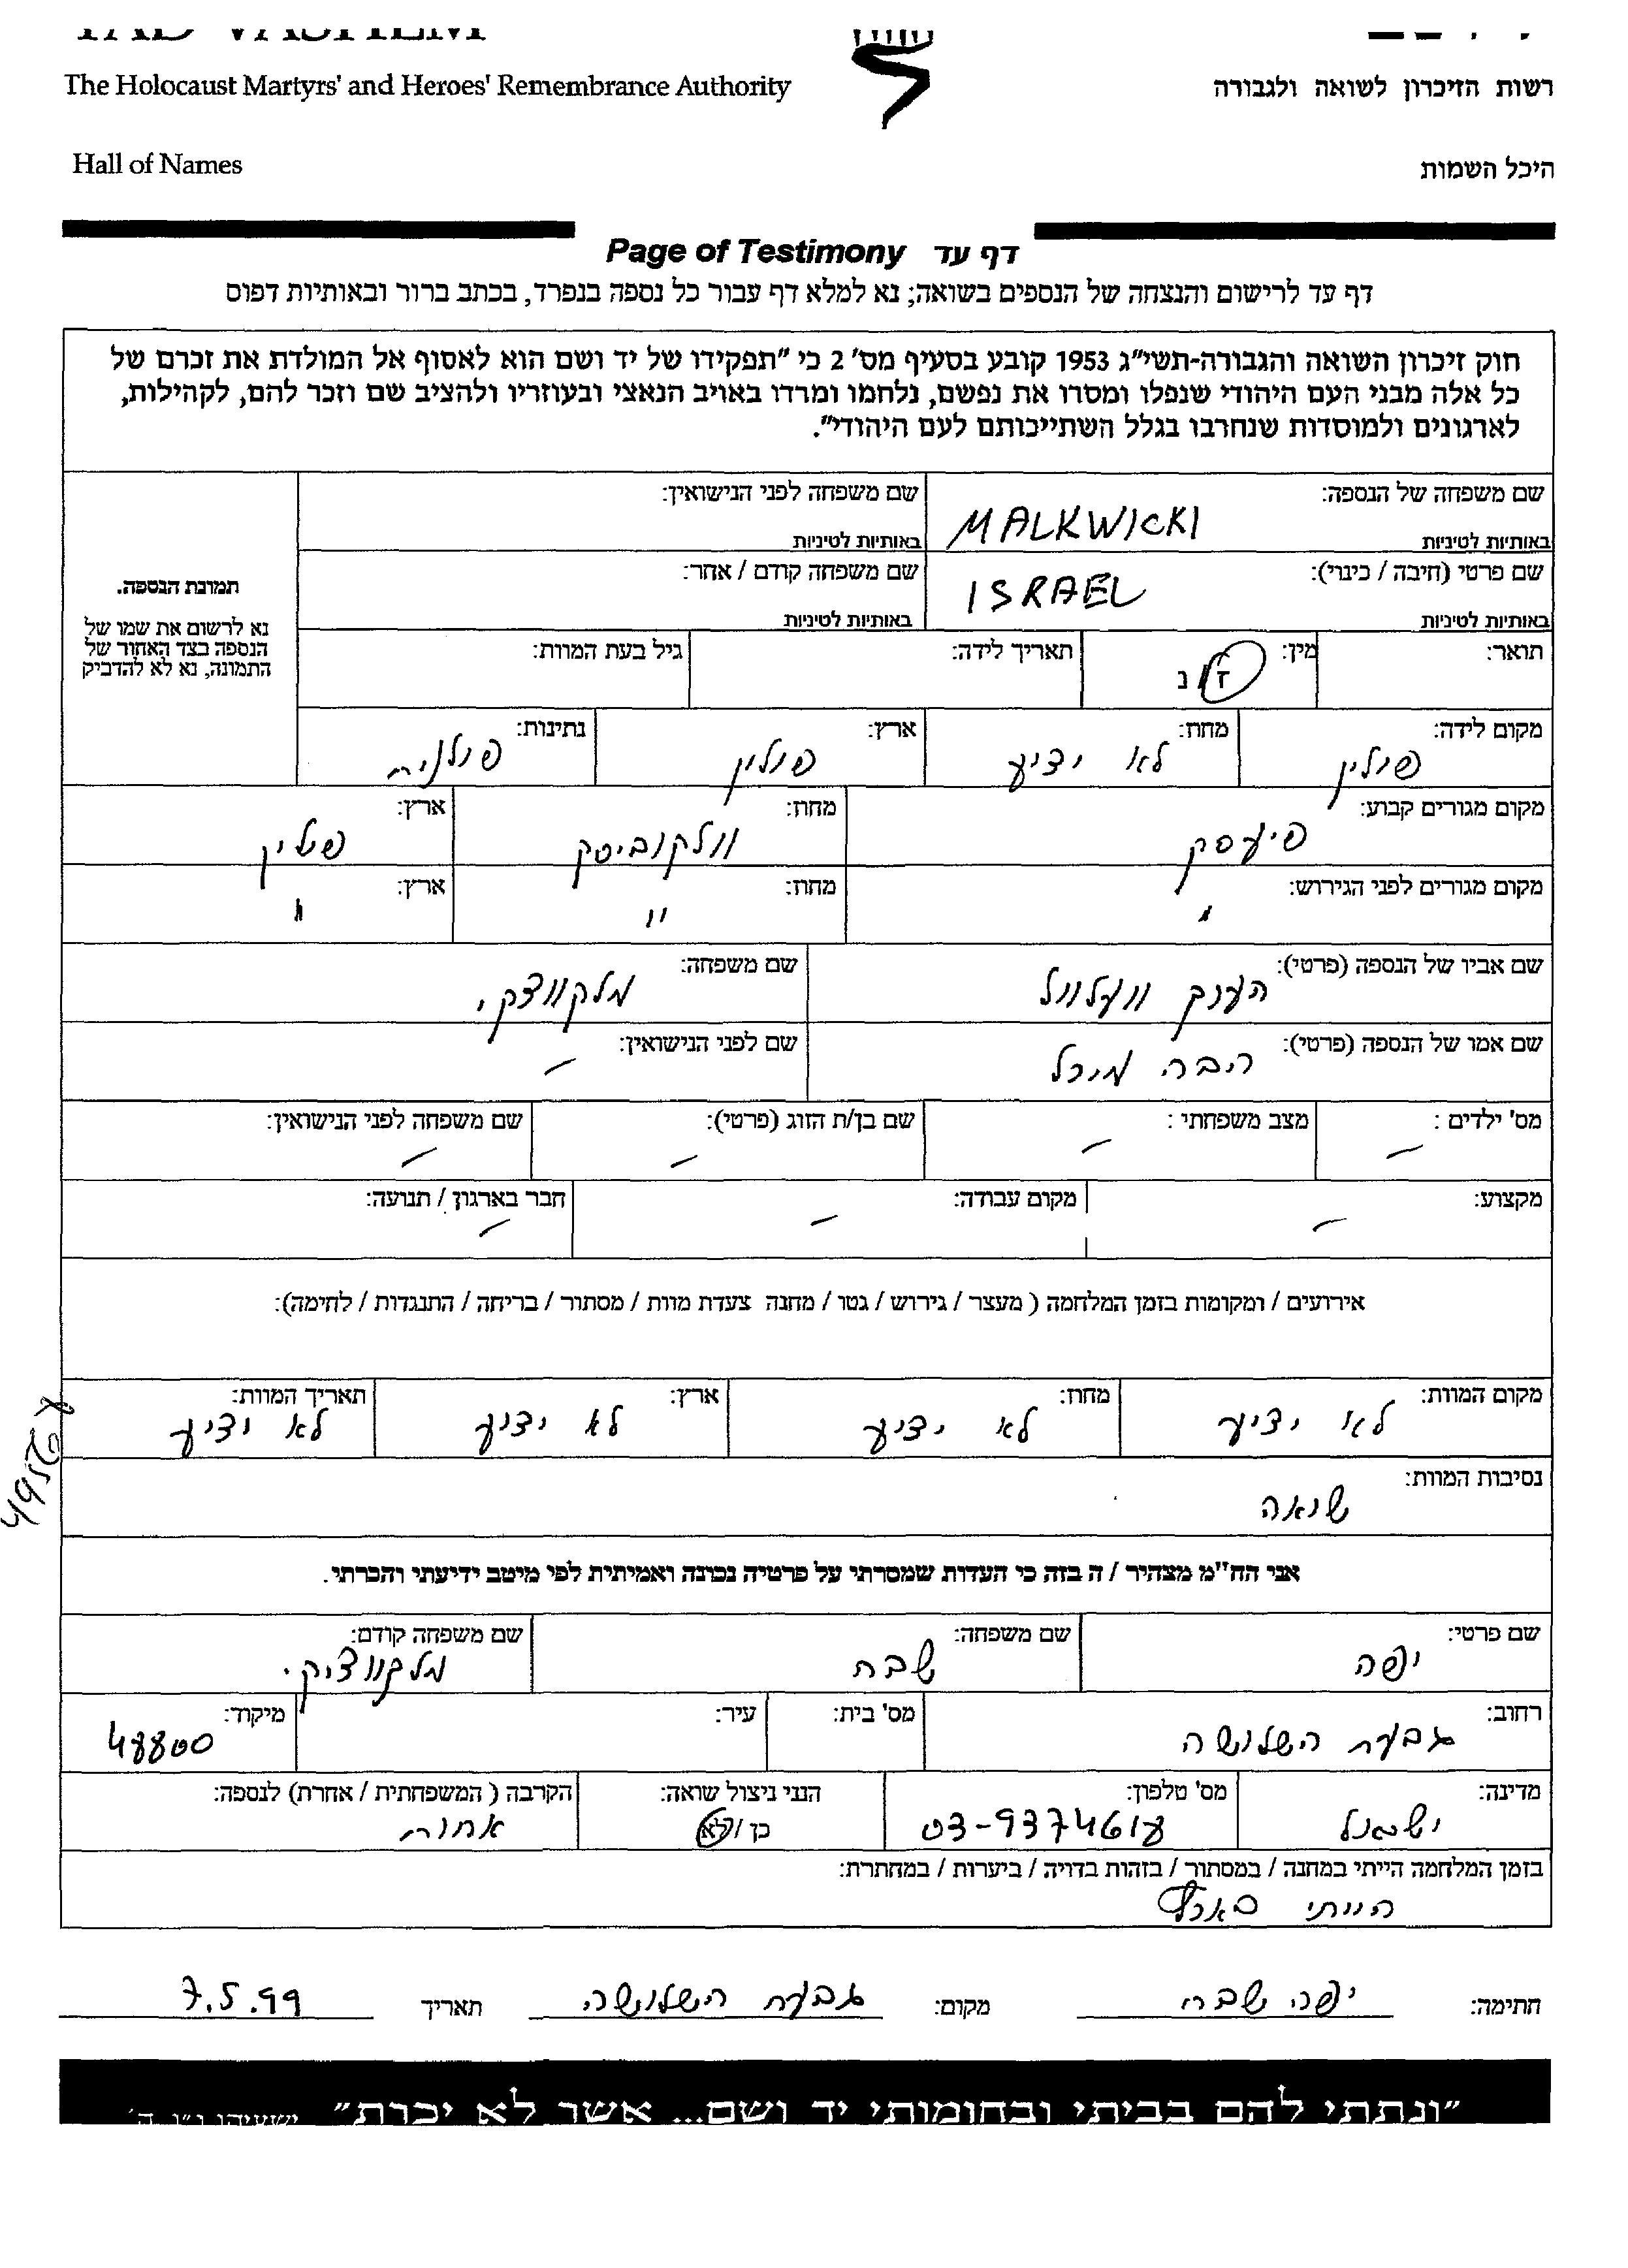 The Holocaust Martyrs' and Heroes' Remembrance Authority
רשות הזיכרון לשואה ולגבורה
Hall of Names
היכל השמות
Page of Testimony דף עד
דף עד לרישום והנצחה של הנספים בשואה; נא למלא דף עבור כל נספה בנפרד, בכתב ברור ובאותיות דפוס
חוק זיכרון השואה והגבורה-תשי"ג 1953 קובע בסעיף מס' 2 כי "תפקידו של יד ושם הוא לאסוף אל המולדת את זכרם של
כל אלה מבני העם היהודי שנפלו ומסרו את נפשם, נלחמו ומרדו באויב הנאצי ובעוזריו ולהציב שם וזכר להם, לקהילות,
לארגונים ולמוסדות שנחרבו בגלל השתייכותם לעם היהודי".
שם משפחה של הנספה: MALKWICKI שם משפחה לפני הנישואין:
באותיות לטיניות באותיות לטיניות
שם פרטי (חיבה / כינוי): ISRAEL שם משפחה קודם / אחר:
באותיות לטיניות באותיות לטיניות
תמונת הנספה.
נא לרשום את שמו של
הנספה בצד האחור של
התמונה, נא לא להדביק
תואר: מין: ז / נ תאריך לידה: גיל בעת המוות:
מקום לידה: מחוז: ארץ: נתינות:
פולין לא ידוע פולין פולנית
מקום מגורים קבוע: מחוז: ארץ:
פיעסק וולקוביסק פולין
מקום מגורים לפני הגירוש: מחוז: ארץ:
" " "
שם אביו של הנספה (פרטי): שם משפחה:
הענך וועלוול מלקווצקי
שם אמו של הנספה (פרטי): שם לפני הנישואין:
מיכל –
מס' ילדים : מצב משפחתי : שם בן/ת הזוג (פרטי): שם משפחה לפני הנישואין:
– – – –
מקצוע: מקום עבודה: חבר בארגון / תנועה:
– – –
אירועים / ומקומות בזמן המלחמה ( מעצר / גירוש / גטו / מחנה צעדת מוות / מסתור / בריחה / התנגדות / לחימה):
מקום המוות: מחוז: ארץ: תאריך המוות:
לא ידוע לא ידוע לא ידוע לא ידוע
נסיבות המוות:
שואה
אני הח"מ מצהיר / ה בזה כי העדות שמסרתי על פרטיה נכונה ואמיתית לפי מיטב ידיעתי והכרתי.
שם פרטי: שם משפחה: שם משפחה קודם:
יפה שבח מלקווציקי
רחוב: מס' בית: עיר: מיקוד:
גבעת השלושה 48800
מדינה: מס' טלפון: הנני ניצול שואה: הקרבה ( המשפחתית / אחרת) לנספה:
ישראל 03-9374618 כן / לא אחות
בזמן המלחמה הייתי במחנה / במסתור / בזהות בדויה / ביערות / במחתרת:
הייתי בארץ
חתימה: יפה שבח מקום: גבעת השלושה תאריך 7.5.99
"ונתתי להם בביתי ובחומותי יד ושם... אשר לא יכרת" ישעיהו נ"ו ה'